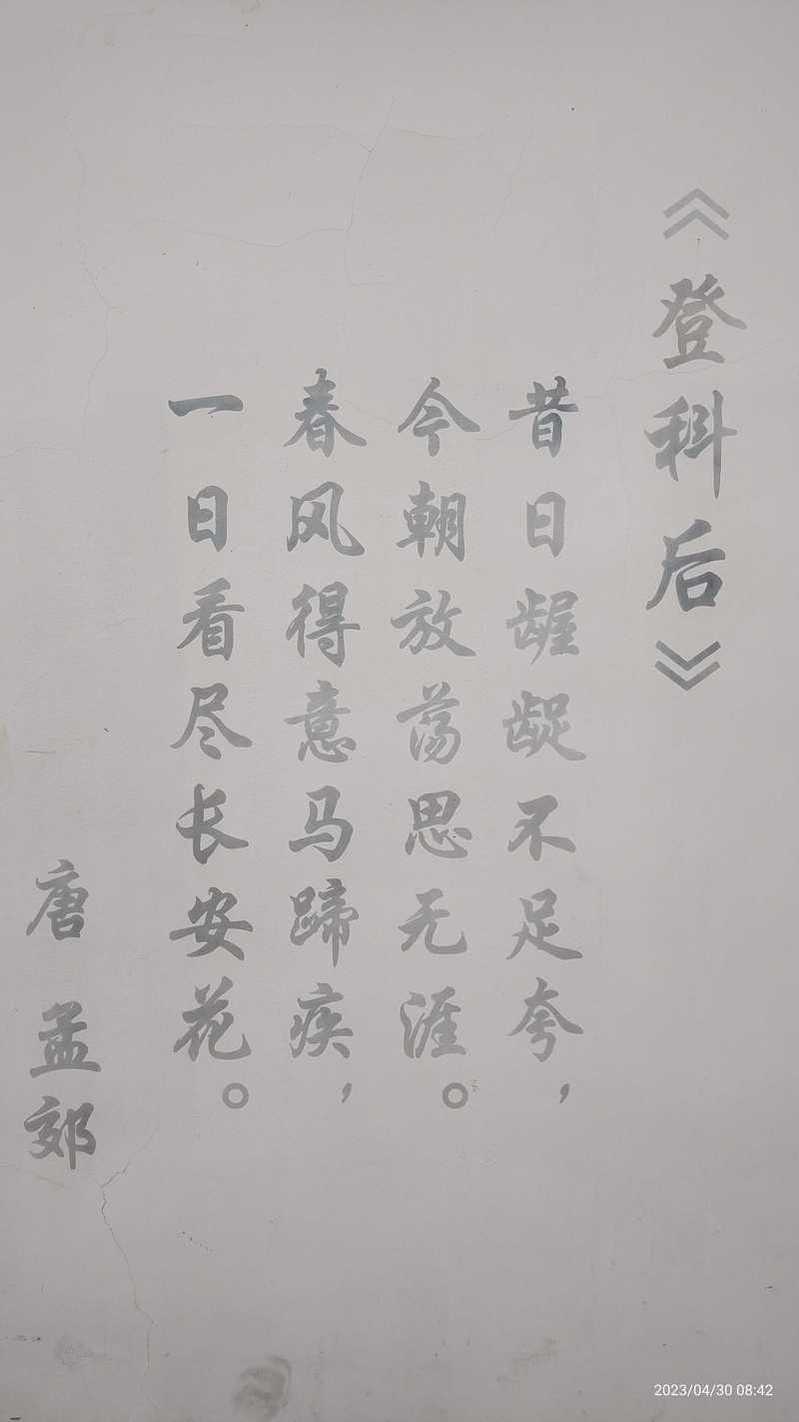 《登科后》
昔日龌龊不足夸，
今朝放荡思无涯。
春风得意马蹄疾，
一日看尽长安花。
唐 孟郊
2023/04/30 08:42